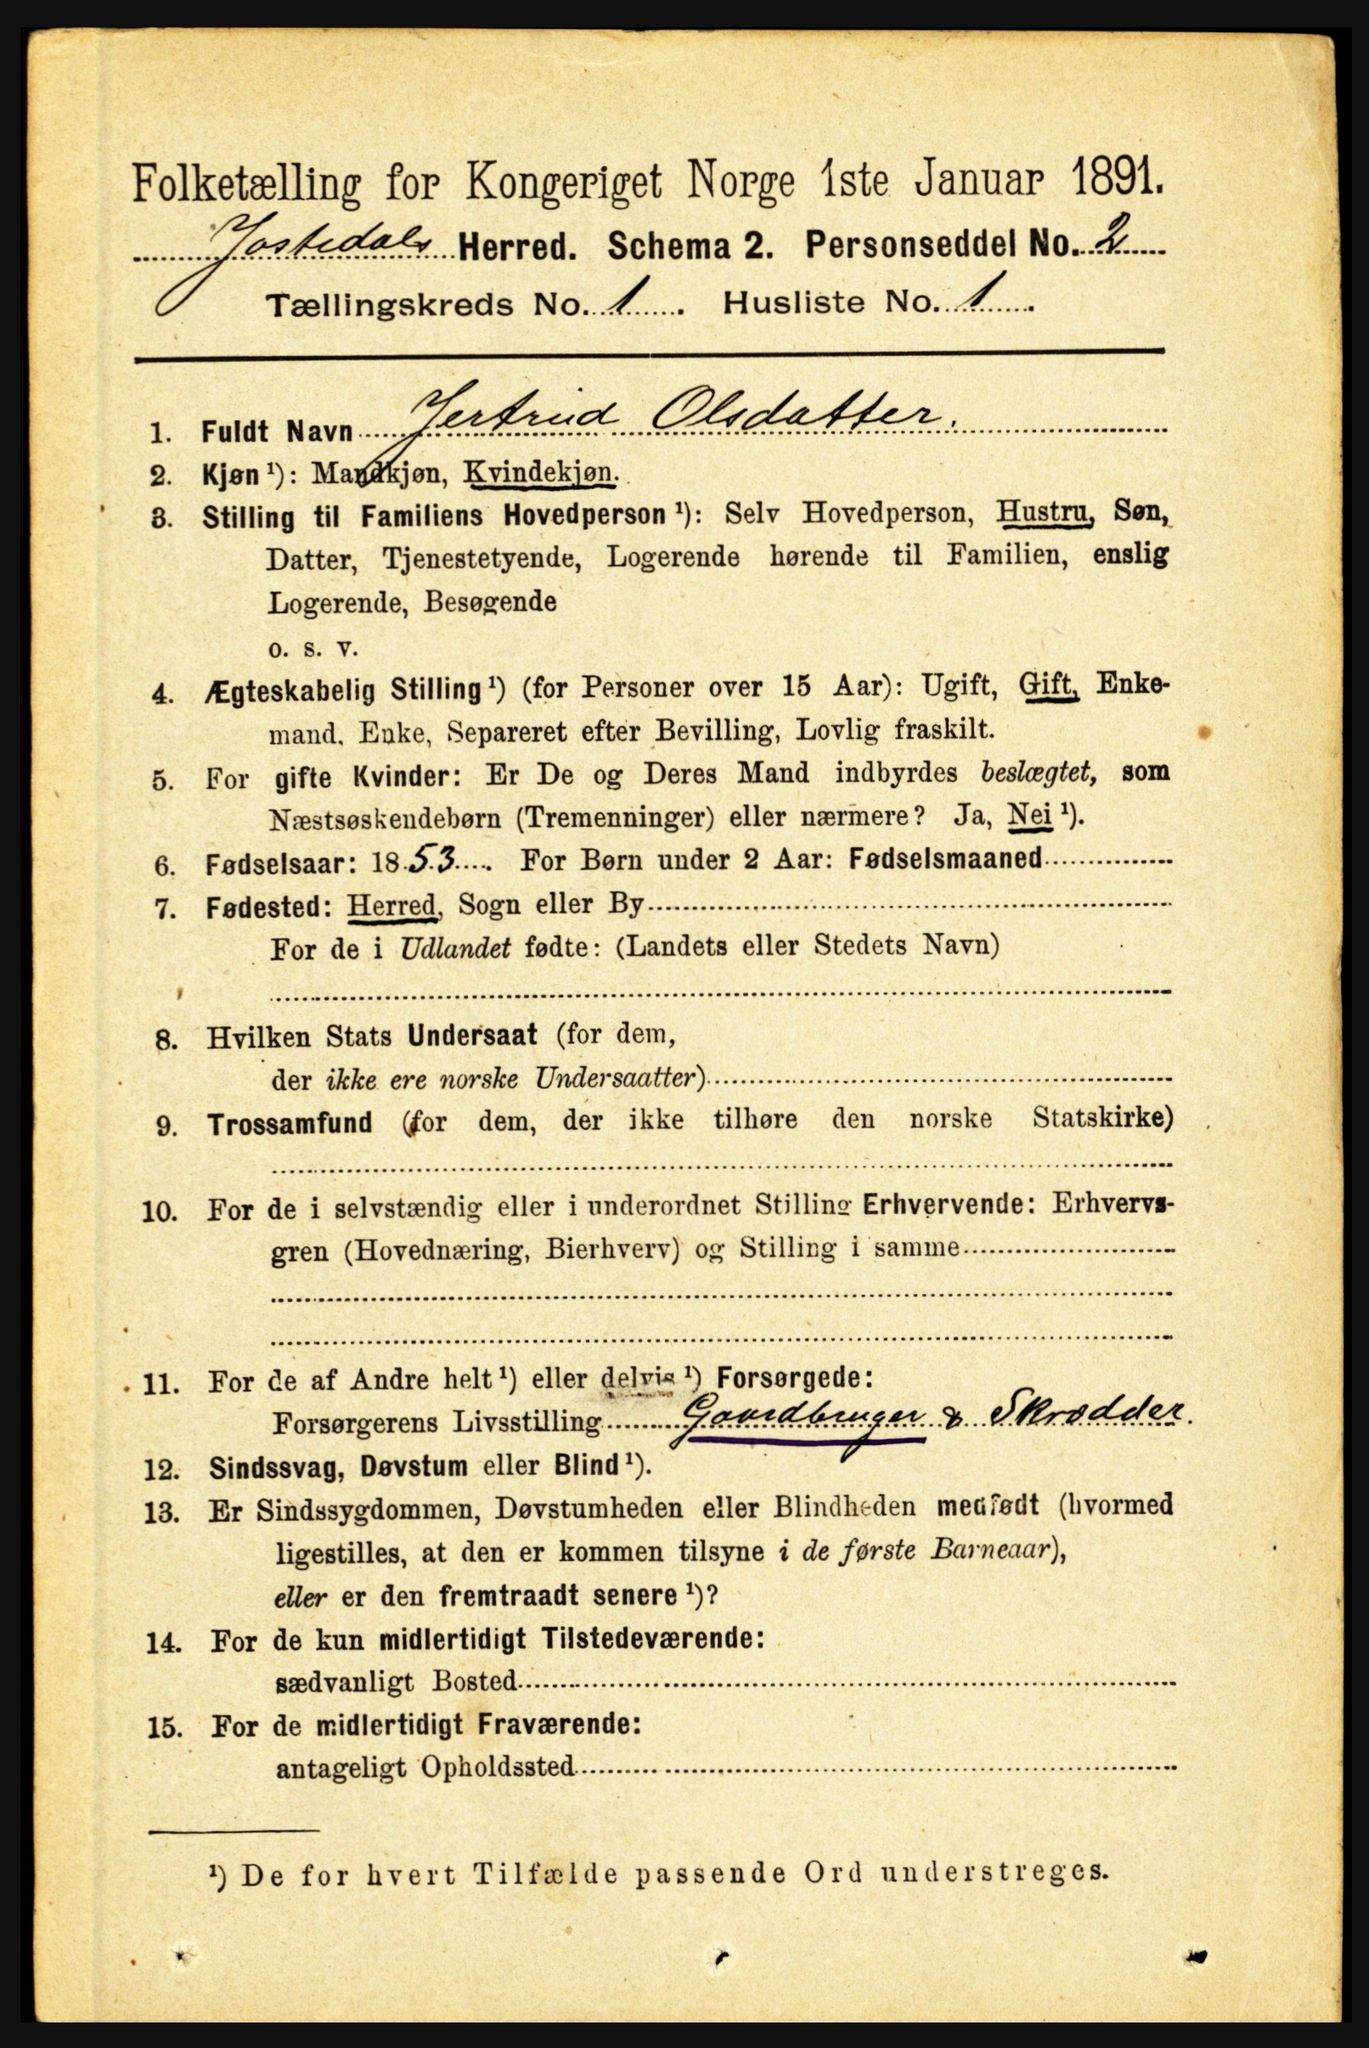 Folketælling for Kongeriget Norge 1ste Januar 1891.
Jostedals Herred. Schema 2. Personseddel No. 2
Tællingskreds No. 1. Husliste No. 1.
1. Fuldt Navn Jertrud Olsdatter.
2. Kjøn ¹): Mandkjøn, Kvindekjøn.
3. Stilling til Familiens Hovedperson ¹): Selv Hovedperson, Hustru, Søn,
Datter, Tjenestetyende, Logerende hørende til Familien, enslig
Logerende, Besøgende
o. s. v.
4. Ægteskabelig Stilling ¹) (for Personer over 15 Aar): Ugift, Gift, Enke-
mand, Enke, Separeret efter Bevilling, Lovlig fraskilt.
5. For gifte Kvinder: Er De og Deres Mand indbyrdes beslægtet, som
Næstsøskendebørn (Tremenninger) eller nærmere? Ja, Nei ¹).
6. Fødselsaar: 1853. For Børn under 2 Aar: Fødselsmaaned
7. Fødested: Herred, Sogn eller By
For de i Udlandet fødte: (Landets eller Stedets Navn)
8. Hvilken Stats Undersaat (for dem,
der ikke ere norske Undersaatter)
9. Trossamfund (for dem, der ikke tilhøre den norske Statskirke)
10. For de i selvstændig eller i underordnet Stilling Erhvervende: Erhvervs-
gren (Hovednæring, Bierhverv) og Stilling i samme
11. For de af Andre helt ¹) eller delvis ¹) Forsørgede:
Forsørgerens Livsstilling Gaardbruger & Skrædder.
12. Sindssvag, Døvstum eller Blind ¹).
13. Er Sindssygdommen, Døvstumheden eller Blindheden medfødt (hvormed
ligestilles, at den er kommen tilsyne i de første Barneaar),
eller er den fremtraadt senere ¹)?
14. For de kun midlertidigt Tilstedeværende:
sædvanligt Bosted
15. For de midlertidigt Fraværende:
antageligt Opholdssted
¹) De for hvert Tilfælde passende Ord understreges.